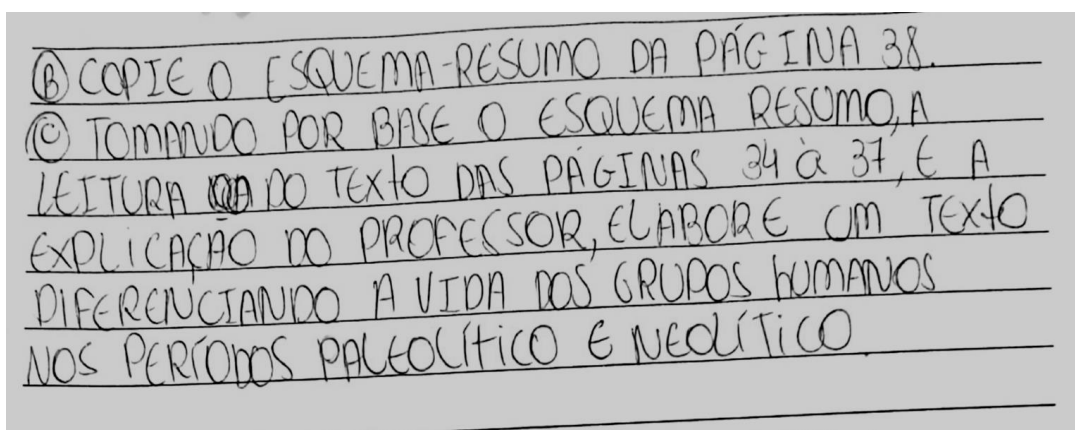 Ⓑ COPIE O ESQUEMA-RESUMO DA PÁGINA 38.
Ⓒ TOMANDO POR BASE O ESQUEMA RESUMO, A
LEITURA DO TEXTO DAS PÁGINAS 34 à 37, E A
EXPLICAÇÃO DO PROFESSOR, ELABORE UM TEXTO
DIFERENCIANDO A VIDA DOS GRUPOS HUMANOS
NOS PERÍODOS PALEOLÍTICO E NEOLÍTICO